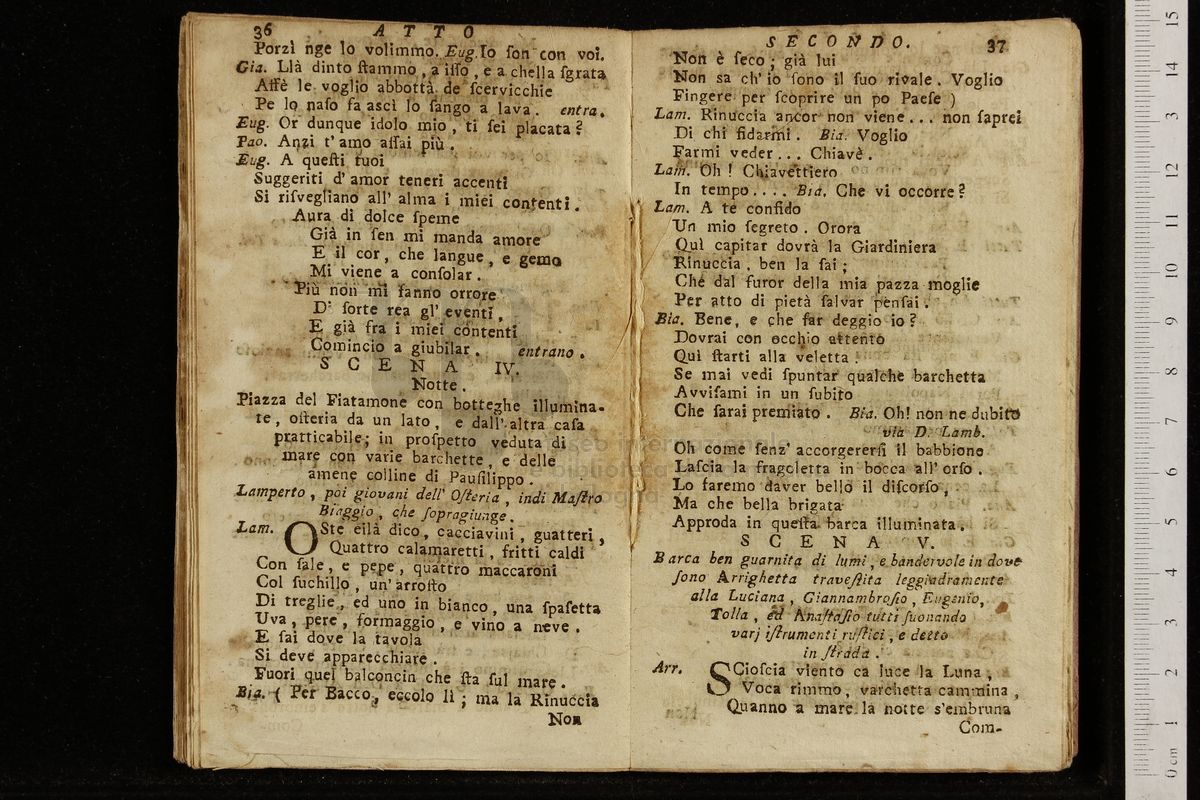 36 ATTO
Porzì nge lo volimmo. Eug. Io ſon con voi.
Gia. Llà dinto ſtammo, a iſſo, e a chella ſgrata
Affè le voglio abbottà de ſcervicchie
Pe lo naſo fa ascì lo ſango a lava. entra.
Eug. Or dunque idolo mio, ti ſei placata?
Pao. Anzi t' amo aſſai più.
Eug. A queſti tuoi
Suggeriti d' amor teneri accenti
Si riſvegliano all' alma i miei contenti.
Aura di dolce ſpeme
Già in ſen mi manda amore
E il cor, che langue, e geme
Mi viene a conſolar.
Più non mi fanno orrore
D' ſorte rea gl' eventi,
E già fra i miei contenti
Comincio a giubilar. entrano.
SCENA IV.
Notte.
Piazza del Fiatamone con botteghe illumina-
te, oſteria da un lato, e dall' altra caſa
pratticabile; in proſpetto veduta di
mare con varie barchette, e delle
amene colline di Pauſilippo.
Lamperto, poi giovani dell' Oſteria, indi Maſtro
Biaggio, che ſopragiunge.
Lam. OSte eilà dico, cacciavini, guatteri,
Quattro calamaretti, fritti caldi
Con ſale, e pepe, quattro maccaroni
Col ſuchillo, un' arroſto
Di treglie, ed uno in bianco, una ſpaſetta
Uva, pere, formaggio, e vino a neve.
E ſai dove la tavola
Si deve apparecchiare.
Fuori quel balconcin che ſta ſul mare.
Bia. ( Per Bacco, eccolo lì; ma la Rinuccia
Non
SECONDO. 37
Non è ſeco; già lui
Non sa ch' io ſono il ſuo rivale. Voglio
Fingere per ſcoprire un po Paeſe )
Lam. Rinuccia ancor non viene... non ſaprei
Di chi fidarmi. Bia. Voglio
Farmi veder... Chiavè.
Lam. Oh! Chiavettiero
In tempo.... Bia. Che vi occorre?
Lam. A te confido
Un mio ſegreto. Orora
Quì capitar dovrà la Giardiniera
Rinuccia, ben la ſai;
Chè dal furor della mia pazza moglie
Per atto di pietà ſalvar penſai.
Bia. Bene, e che far deggio io?
Dovrai con occhio attento
Quì ſtarti alla veletta.
Se mai vedi ſpuntar qualche barchetta
Avviſami in un ſubito
Che ſarai premiato. Bia. Oh! non ne dubito
via D. Lamb.
Oh come ſenz' accorgererſi il babbiono
Laſcia la fragoletta in bocca all' orſo.
Lo faremo daver bello il diſcorſo,
Ma che bella brigata
Approda in queſta barca illuminata.
SCENA V.
Barca ben guarnita di lumi, e bandervole in dove
ſono Arrighetta traveſtita leggiadramente
alla Luciana, Giannambroſio, Eugenio,
Tolla, ed Anaſtaſio tutti ſuonando
varj iſtrumenti ruſtici, e detto
in ſtrada.
Arr. SCioſcia viento ca luce la Luna,
Voca rimmo, varchetta cammina,
Quanno a mare la notte s'embruna
Com-